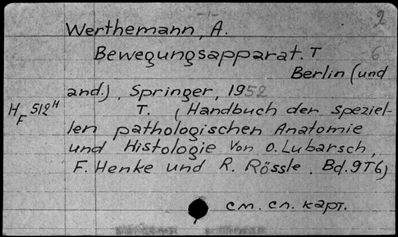 -1-
2
Werthemann, A.
Bewegungsapparat. T 6
Berlin (und
and.), Springer, 1952
H F 512 H T. (Handbuch der speziel-
len pathologischen Anatomie
und Histologie von O. Lubarsch,
F. Henke und R. Rössle. Bd. 9 T 6)
см. сл. карт.